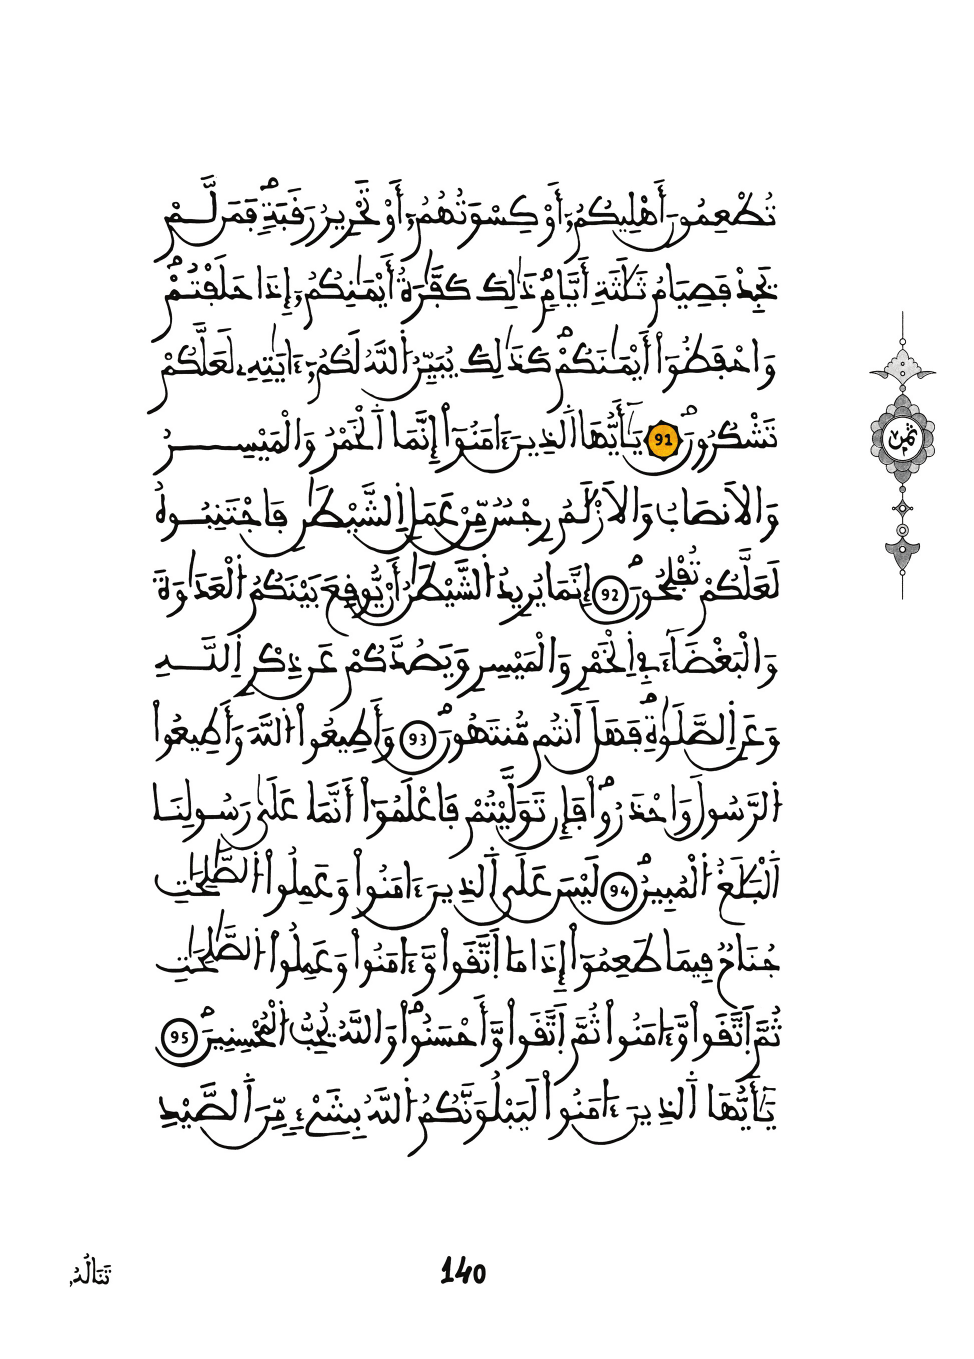 تُطْعِمُونَ أَهْلِيكُمُۥٓ أَوْ كِسْوَتُهُمُۥٓ أَوْ تَحْرِيرُ رَقَبَةٖۖ فَمَن لَّمْ
يَجِدْ فَصِيَامُ ثَلَٰثَةِ أَيَّامٖۖ ذَٰلِكَ كَفَّٰرَةُ أَيْمَٰنِكُمُۥٓ إِذَا حَلَفْتُمْۖ
وَاحْفَظُوٓاْ أَيْمَٰنَكُمْۖ كَذَٰلِكَ يُبَيِّنُ اُللَّهُ لَكُمُۥٓ ءَايَٰتِهِۦ لَعَلَّكُمْ
تَشْكُرُونَۖ 91 يَٰٓأَيُّهَا اَلذِينَ ءَامَنُوٓاْ إِنَّمَا اَلْخَمْرُ وَالْمَيْسِرُ
وَالَانصَابُ وَالَازْلَٰمُ رِجْسٞ مِّنْ عَمَلِ اِلشَّيْطَٰنِ فَاجْتَنِبُوهُ
لَعَلَّكُمْ تُفْلِحُونَۖ 92 إِنَّمَا يُرِيدُ اُلشَّيْطَٰنُ أَنْ يُّوقِعَ بَيْنَكُمُ اُلْعَدَٰوَةَ
وَالْبَغْضَآءَ فِے اِلْخَمْرِ وَالْمَيْسِرِ وَيَصُدَّكُمْ عَن ذِكْرِ اِللَّهِ
وَعَنِ اِلصَّلَوٰةِۖ فَهَلَ اَنتُم مُّنتَهُونَۖ 93 وَأَطِيعُواْ اُللَّهَ وَأَطِيعُواْ
اُلرَّسُولَ وَاحْذَرُواْۖ فَإِن تَوَلَّيْتُمْ فَاعْلَمُوٓاْ أَنَّمَا عَلَىٰ رَسُولِنَا
اَلْبَلَٰغُ اُلْمُبِينُۖ 94 لَيْسَ عَلَى اَلذِينَ ءَامَنُواْ وَعَمِلُواْ اُلصَّٰلِحَٰتِ
جُنَاحٞ فِيمَا طَعِمُوٓاْ إِذَا مَا اَتَّقَواْ وَّءَامَنُواْ وَعَمِلُواْ اُلصَّٰلِحَٰتِ
ثُمَّ اَتَّقَواْ وَّءَامَنُواْ ثُمَّ اَتَّقَواْ وَّأَحْسَنُواْۖ وَاللَّهُ يُحِبُّ اُلْمُحْسِنِينَۖ 95
يَٰٓأَيُّهَا اَلذِينَ ءَامَنُواْ لَيَبْلُوَنَّكُمُ اُللَّهُ بِشَےْءٖ مِّنَ اَلصَّيْدِ
ثمن
تَنَالُهُۥٓ
140